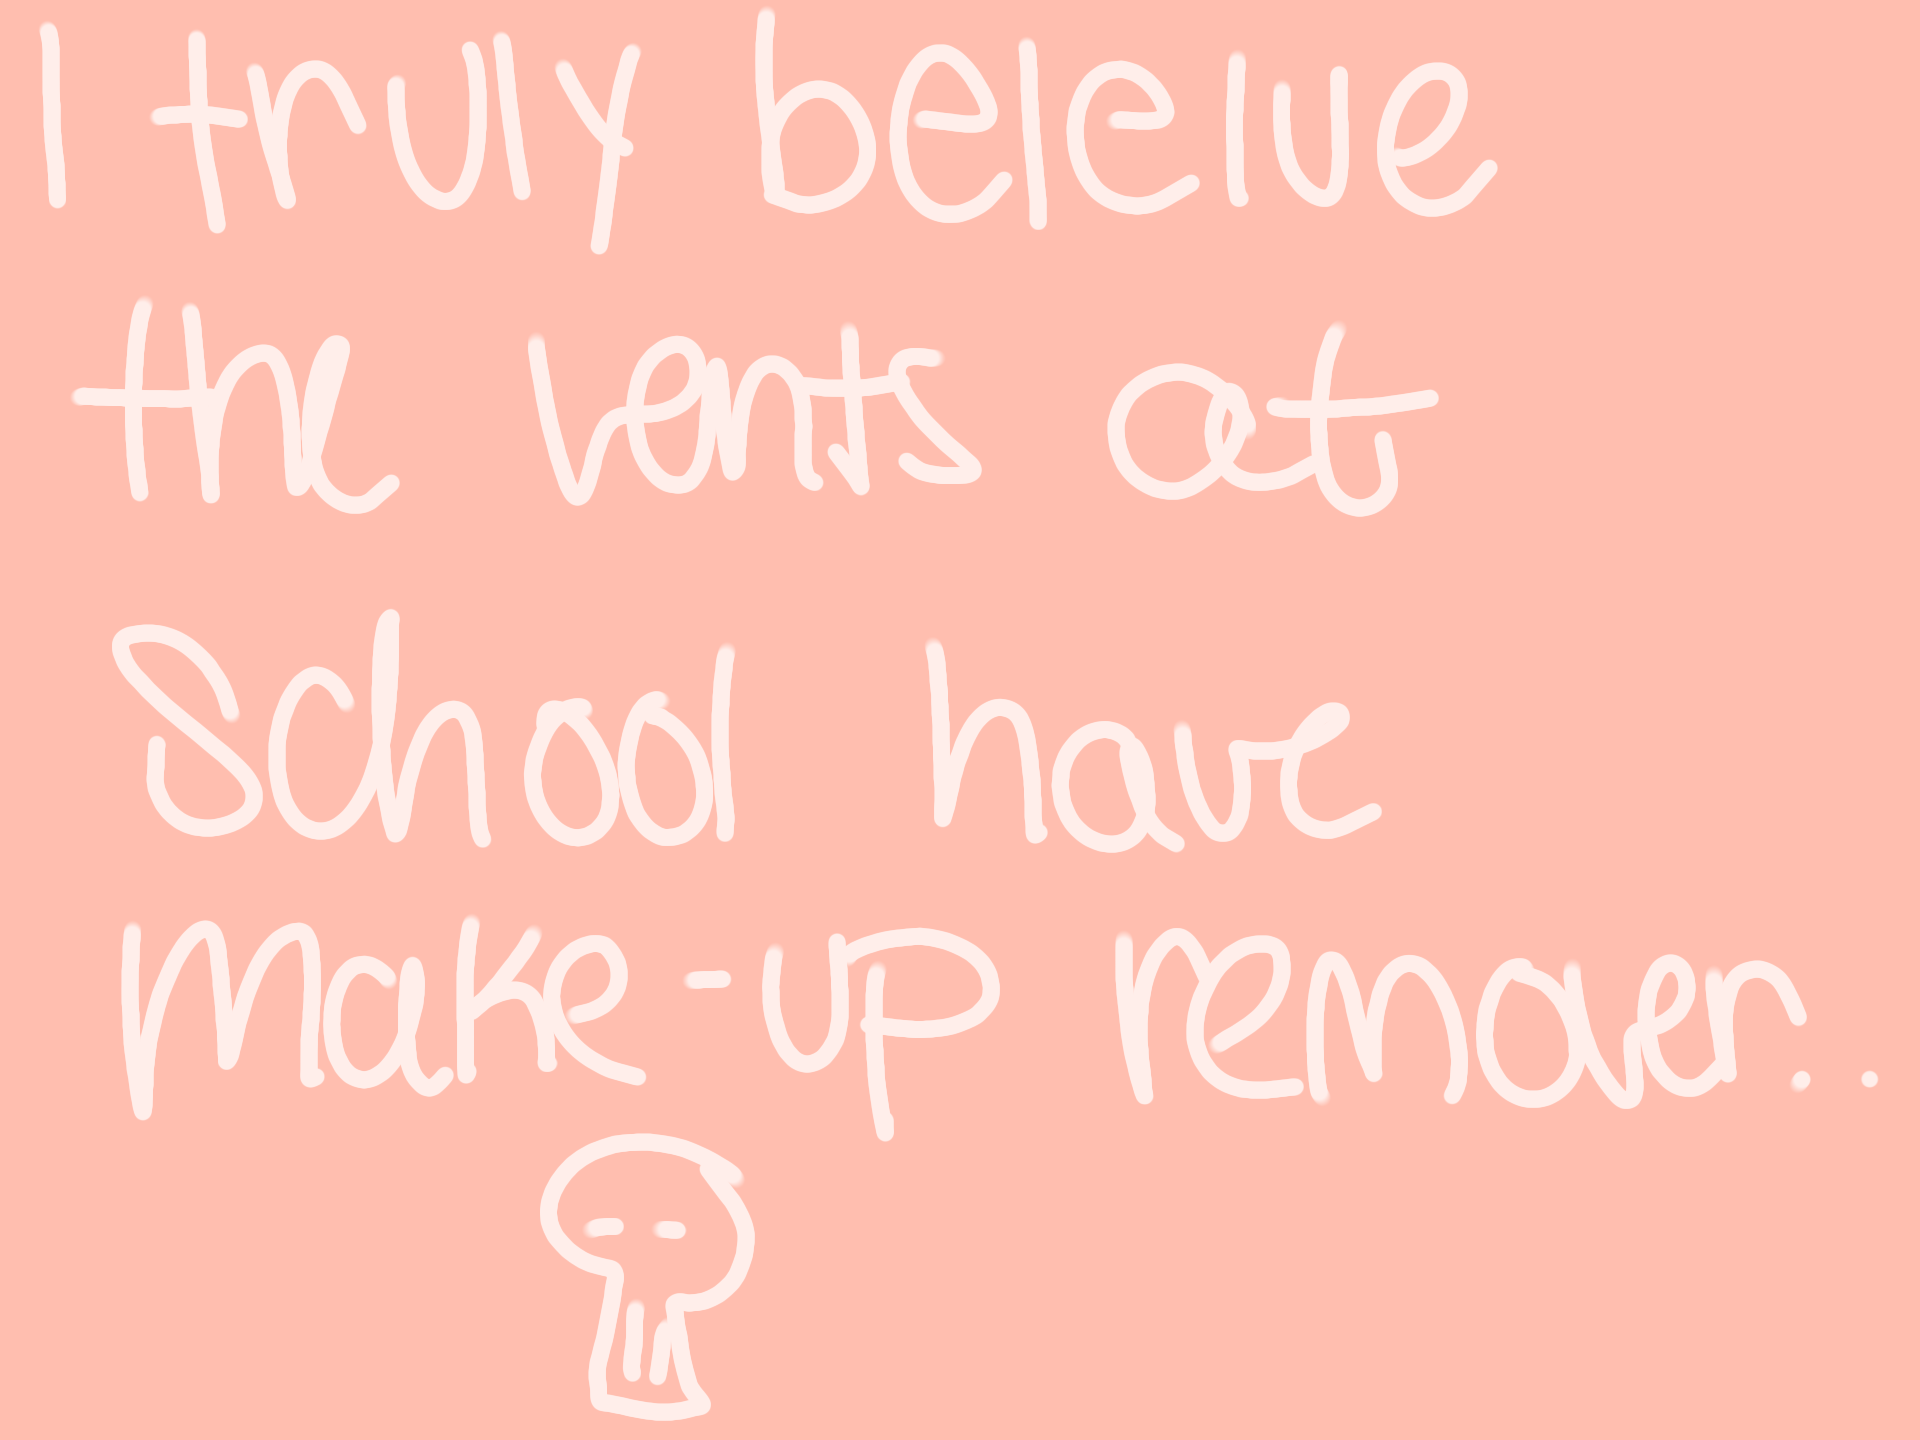 I truly beleive
the vents at
School have
make-up remover..